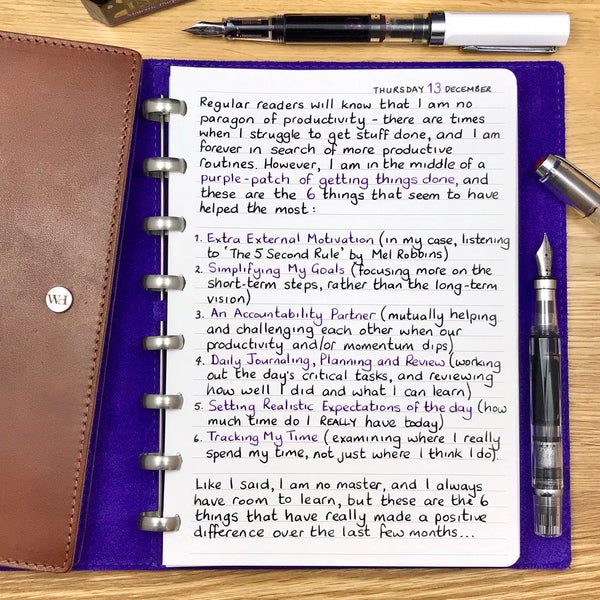 THURSDAY 13 DECEMBER
Regular readers will know that I am no
paragon of productivity - there are times
when I struggle to get stuff done, and I am
forever in search of more productive
routines. However, I am in the middle of a
purple-patch of getting things done, and
these are the 6 things that seem to have
helped the most:
1. Extra External Motivation (in my case, listening
to 'The 5 Second Rule' by Mel Robbins)
2. Simplifying My Goals (focusing more on the
short-term steps, rather than the long-term
vision)
3. An Accountability Partner (mutually helping
and challenging each other when our
productivity and/or momentum dips)
4. Daily Journaling, Planning and Review (working
out the day's critical tasks, and reviewing
how well I did and what I can learn)
5. Setting Realistic Expectations of the day (how
much time do I REALLY have today)
6. Tracking My Time (examining where I really
spend my time, not just where I think I do)
Like I said, I am no master, and I always
have room to learn, but these are the 6
things that have really made a positive
difference over the last few months...
WH